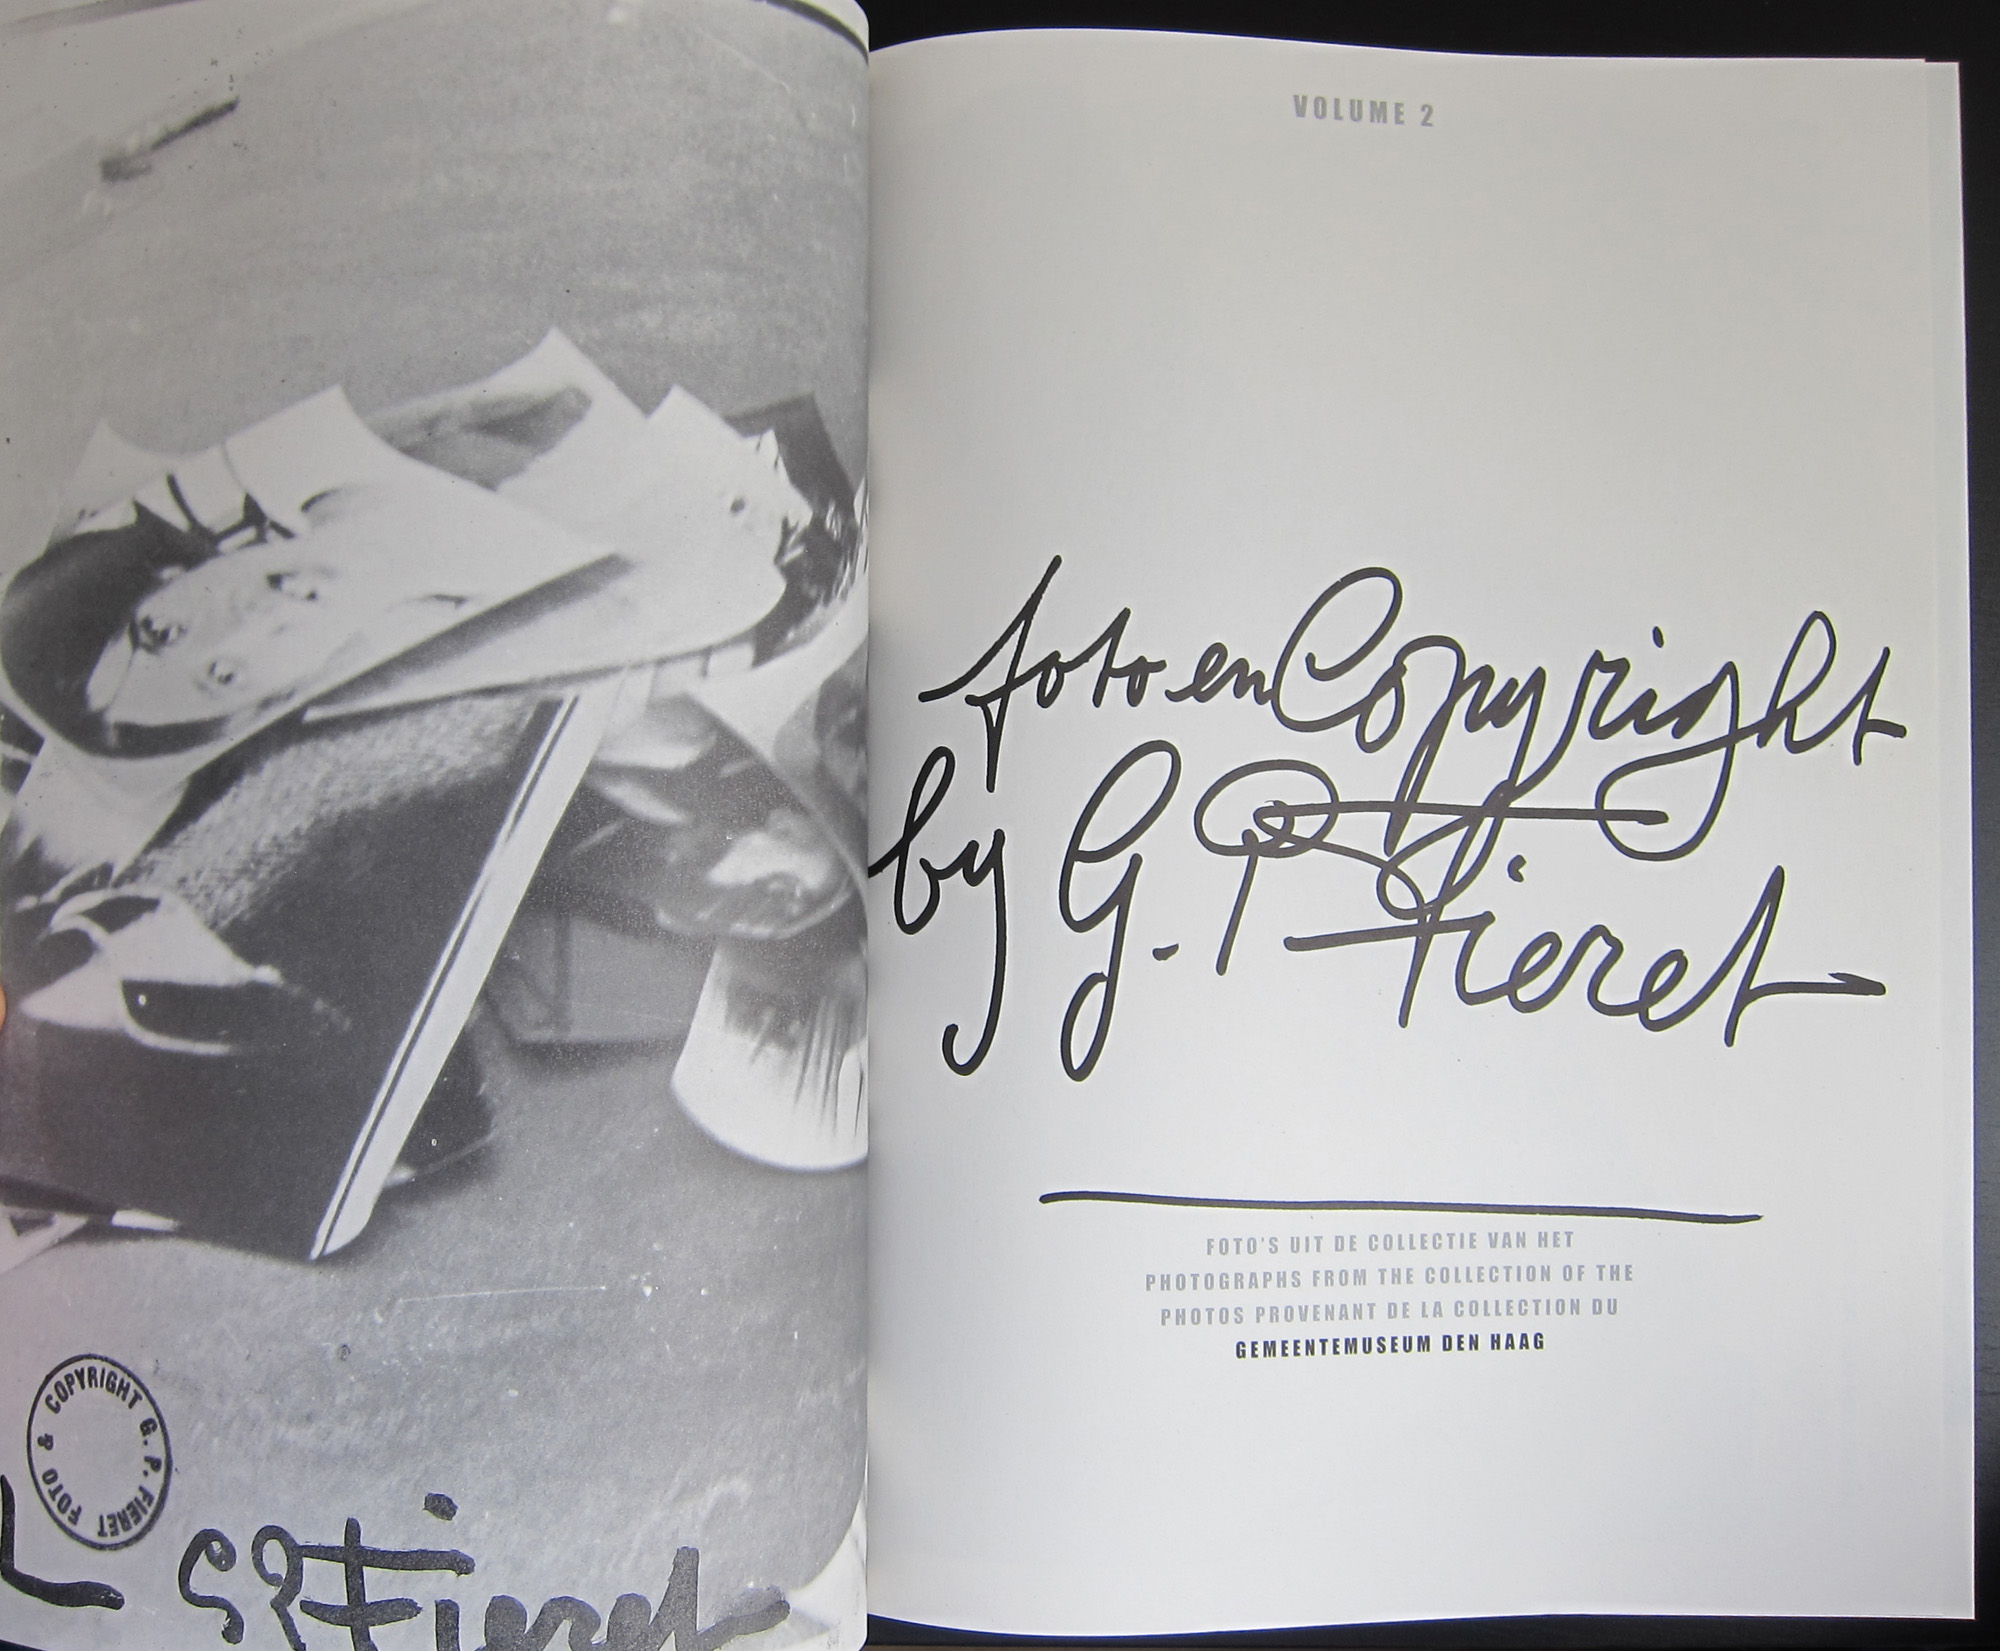 COPYRIGHT G. P. FIERET FOTO &
G P Fieret
VOLUME 2
foto en Copyright
by G. P. Fieret
FOTO'S UIT DE COLLECTIE VAN HET
PHOTOGRAPHS FROM THE COLLECTION OF THE
PHOTOS PROVENANT DE LA COLLECTION DU
GEMEENTEMUSEUM DEN HAAG